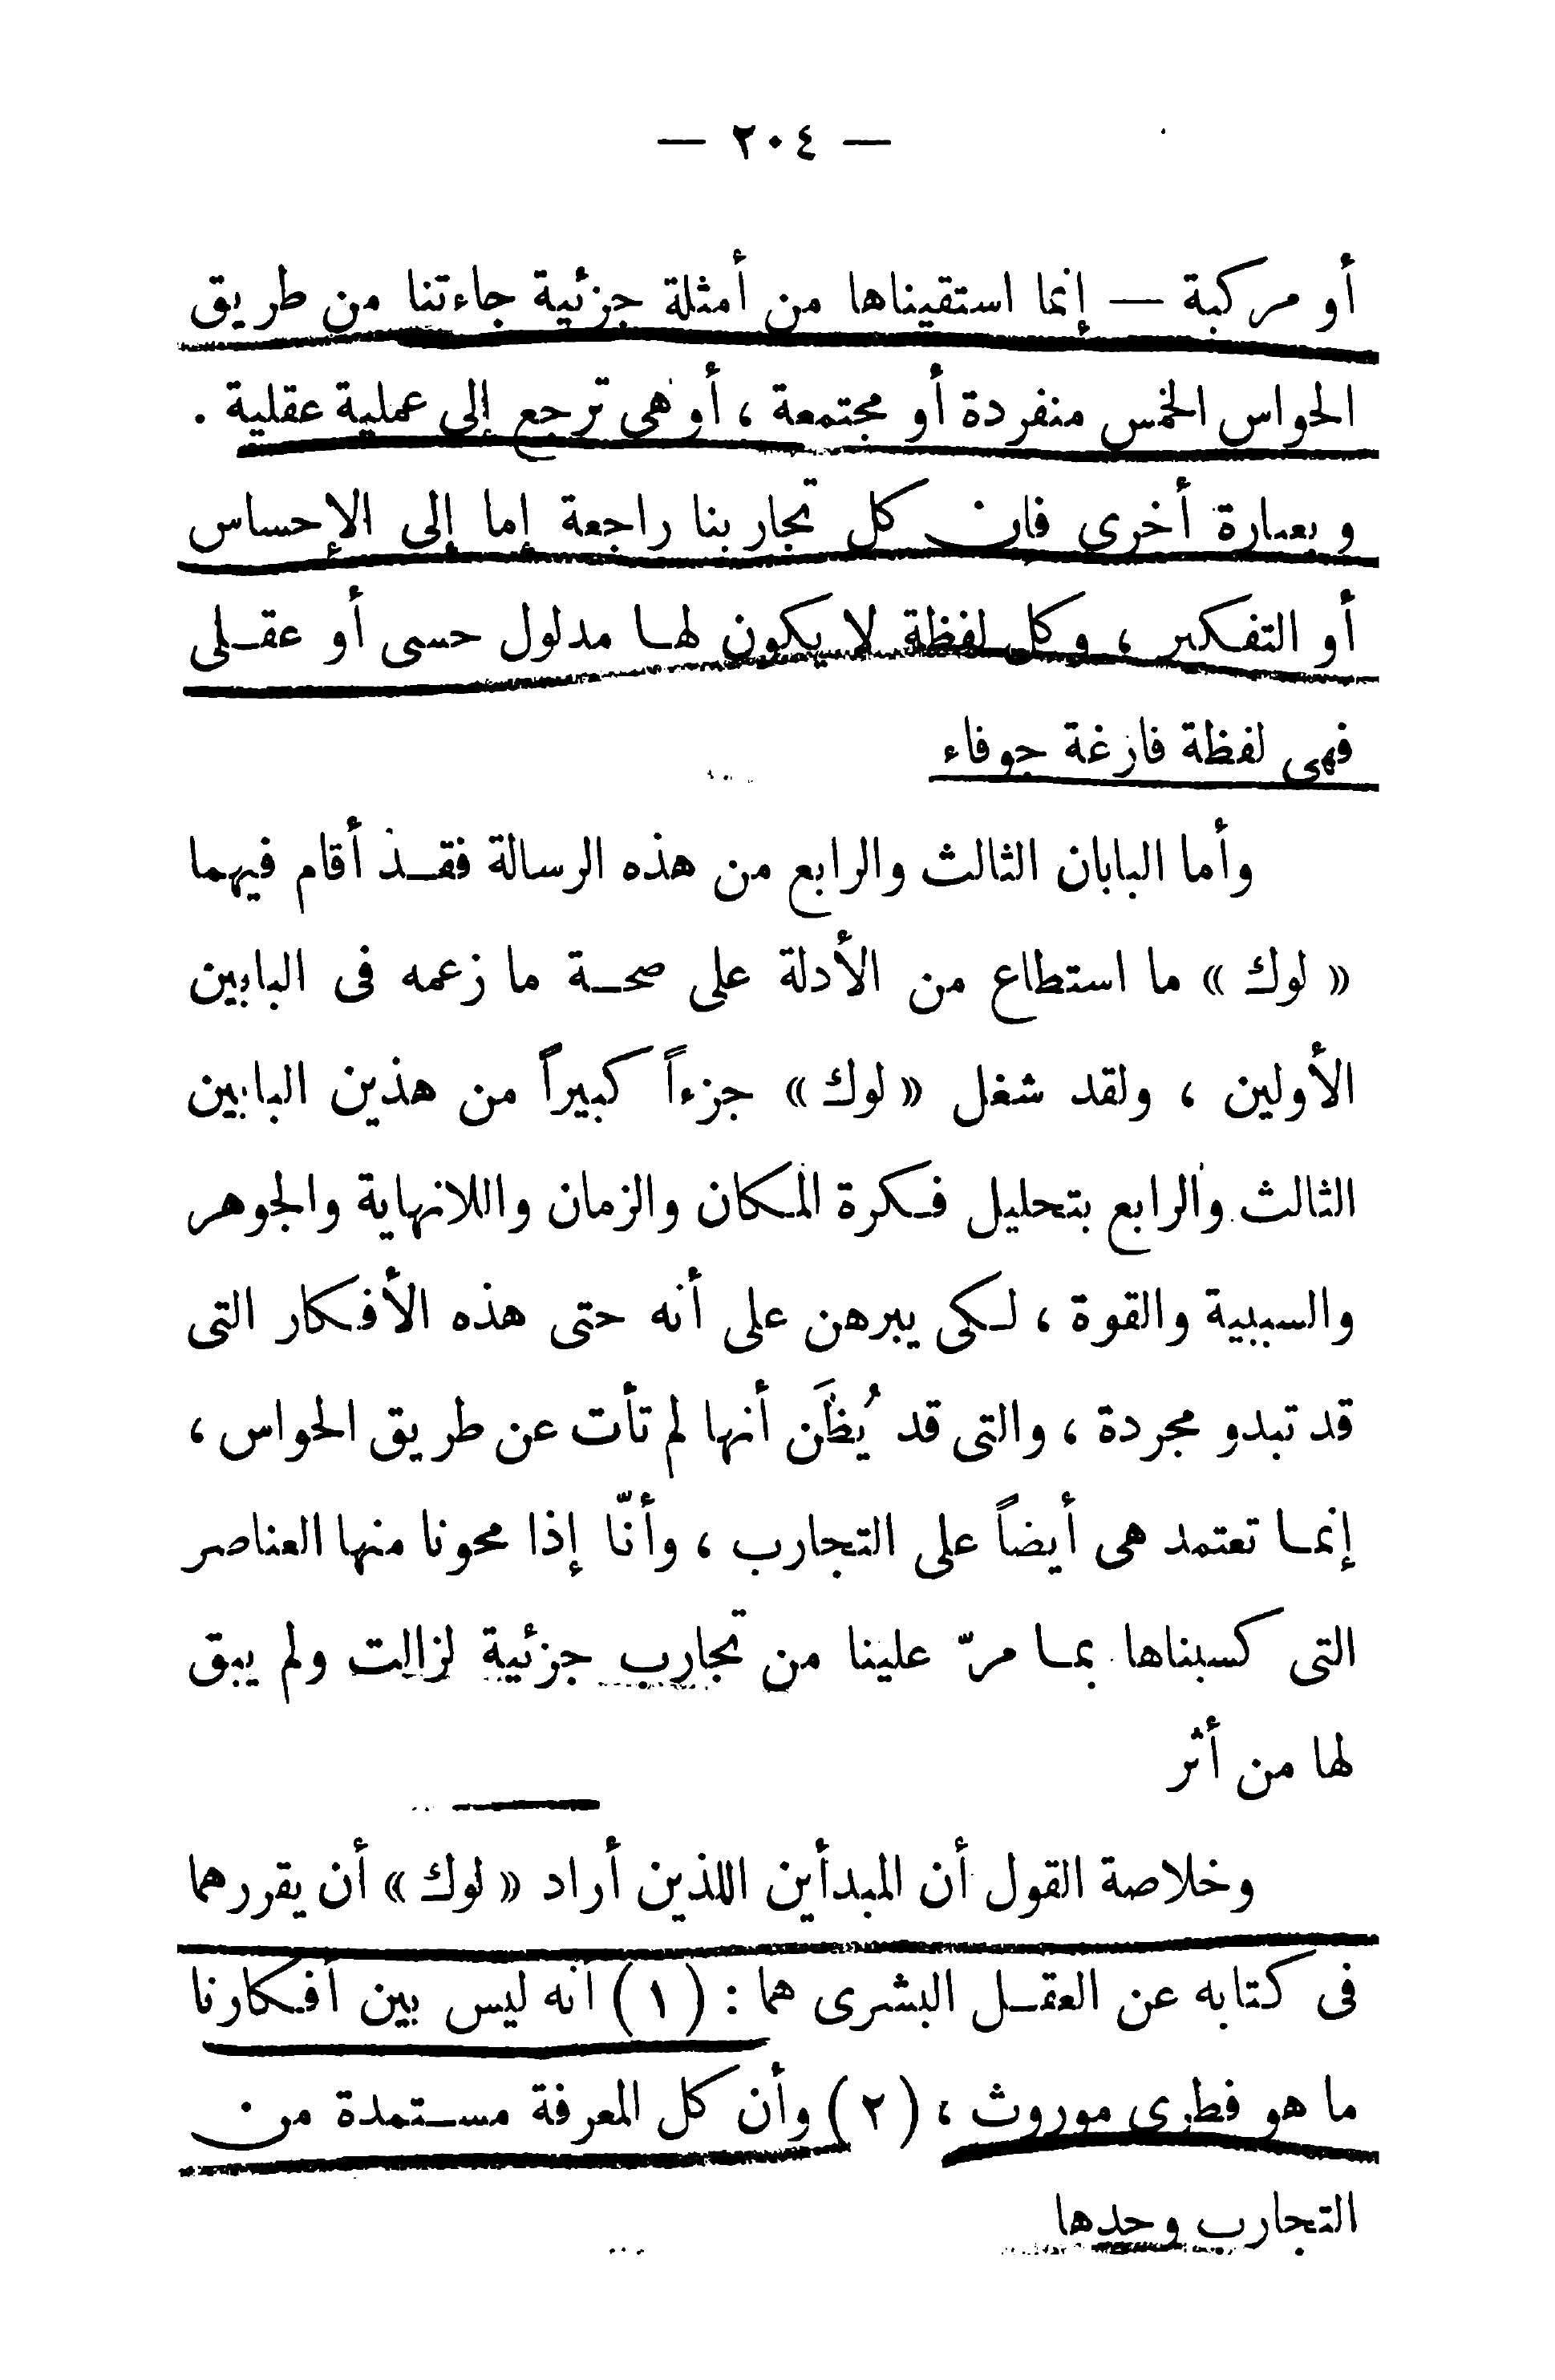 — ٢٠٤ —
أو مركبة — إنما استقيناها من أمثلة جزئية جاءتنا من طريق
الحواس الخمس منفردة أو مجتمعة ، أو هى ترجع إلى عملية عقلية .
وبعبارة أخرى فان كل تجاربنا راجعة إما إلى الإحساس
أو التفكير ، وكل لفظة لا يكون لها مدلول حسى أو عقلى
فهى لفظة فارغة جوفاء
وأما البابان الثالث والرابع من هذه الرسالة فقد أقام فيهما
« لوك » ما استطاع من الأدلة على صحة ما زعمه فى البابين
الأولين ، ولقد شغل « لوك » جزءاً كبيراً من هذين البابين
الثالث والرابع بتحليل فكرة المكان والزمان واللانهاية والجوهر
والسببية والقوة ، لكى يبرهن على أنه حتى هذه الأفكار التى
قد تبدو مجردة ، والتى قد يُظَن أنها لم تأت عن طريق الحواس ،
إنما تعتمد هى أيضاً على التجارب ، وأنّا إذا محونا منها العناصر
التى كسبناها بما مرّ علينا من تجارب جزئية لزالت ولم يبق
لها من أثر
وخلاصة القول أن المبدأين اللذين أراد « لوك » أن يقررهما
فى كتابه عن العقل البشرى هما : ( ١ ) أنه ليس بين أفكارنا
ما هو فطرى موروث ، ( ٢ ) وأن كل المعرفة مستمدة من
التجارب وحدها